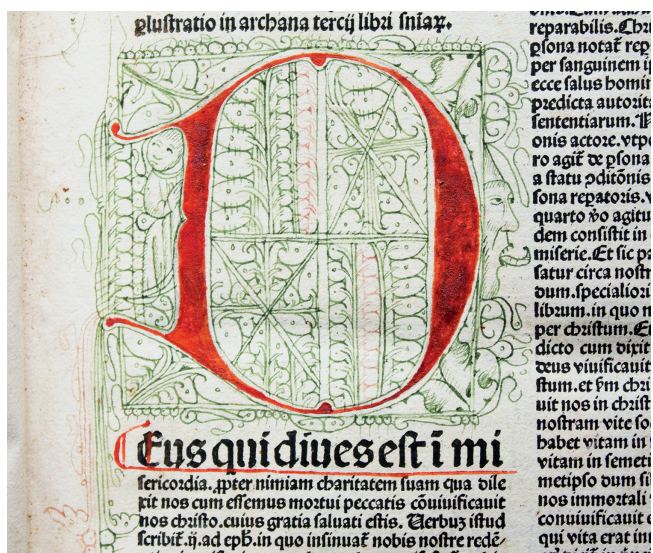 plustratio in archana tercij libri sniaꝝ.
D
Eus qui diues est ī mi
sericordia. ꝓpter nimiam charitatem suam qua dile
xit nos cum essemus mortui peccatis cōuiuificauit
nos christo. cuius gratia saluati estis. Uerbuꝫ istud
scribit̃. ij. ad eph̄. in quo insinuat̃ nobis nostre redē-
reparabilis. Chri
ꝑsona notat̃ rep
per sanguinem ip
ecce salus homin
predicta autorita
sententiarum.
onis actore. vtpo
ro agit̃ de ꝑsona
a statu ꝓditōnis
sona reꝑatoris. v
quarto v̊o agitu
dem consistit in
miserie. Et sic pa
satur circa nostr
dum. specialiori
librum. in quo n
per christum. Eu
dicto cum dixit
deus viuificauit
stum. et ẜm chri
uit nos in christ
nostram vite soc
habet vitam in
vitam in semeti
metipso dum si
nos immortali
conuiuificauit e
qui vita erat im